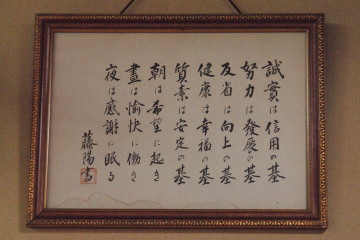 誠實は信用の基
努力は發展の基
反省は向上の基
健康は幸福の基
質素は安定の基
朝は希望に起き
晝は愉快に働き
夜は感謝に眠る
藤陽書